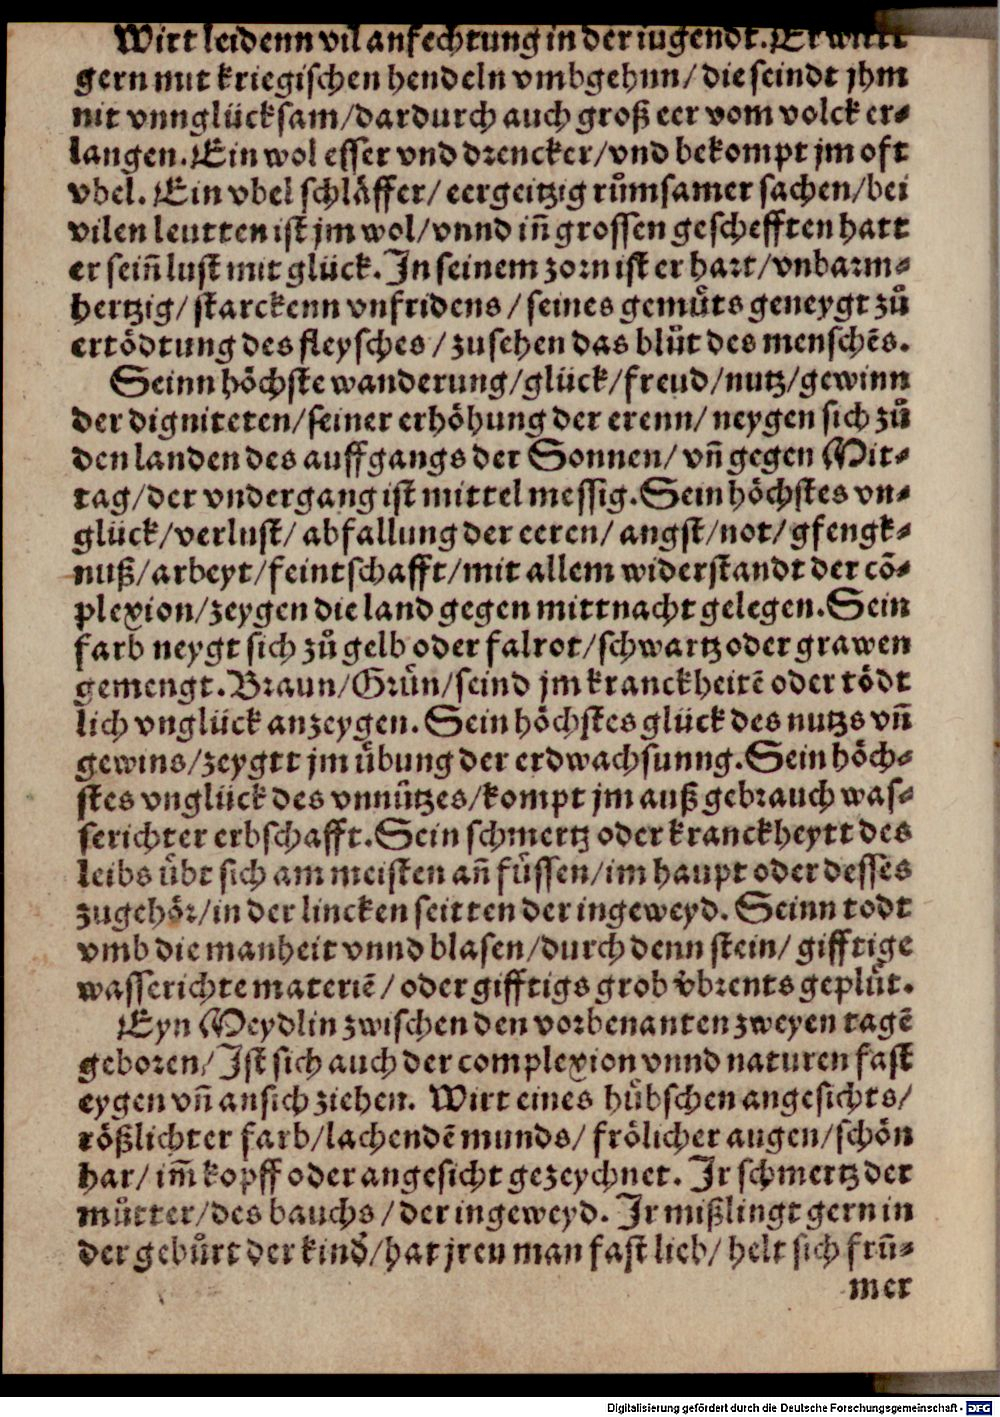 Wirt leidenn vil anfechtung in der iugendt. Er wirt
gern mit kriegischen hendeln vmbgehnn/ die seindt jhm
nit vnnglücksam/dardurch auch groß eer vom volck er-
langen. Ein wol esser vnd drencker/vnd bekompt jm oft
vbel. Ein vbel schläffer/ eergeitzig růmsamer sachen/bei
vilen leutten ist jm wol/vnnd iñ grossen geschefften hatt
er seiñ lust mit glück. In seinem zorn ist er hart/vnbarm-
hertzig/ starckenn vnfridens / seines gemůts geneygt zů
ertödtung des fleysches / zusehen das blůt des menschẽs.
Seinn höchste wanderung/glück/freud/nutz/gewinn
der digniteten/seiner erhöhung der erenn/ neygen sich zů
den landen des auffgangs der Sonnen/ vñ gegen Mit-
tag/der vndergang ist mittel messig. Sein höchstes vn-
glück/verlust/ abfallung der eeren/ angst/not/gfengk-
nuß/arbeyt/feintschafft/mit allem widerstandt der cõ-
plexion/zeygen die land gegen mittnacht gelegen. Sein
farb neygt sich zů gelb oder falrot/schwartz oder grawen
gemengt. Braun/Grün/seind jm kranckheitẽ oder tödt
lich vnglück anzeygen. Sein höchstes glück des nutzs vñ
gewins/zeygtt jm übung der erdwachsunng. Sein höch-
stes vnglück des vnnützes/kompt jm auß gebrauch was-
serichter erbschafft. Sein schmertz oder kranckheytt des
leibs übt sich am meisten añ füssen/im haupt oder dessẽs
zugehör/in der lincken seitten der ingeweyd. Seinn todt
vmb die manheit vnnd blasen/durch denn stein/ gifftige
wasserichte materiẽ / oder gifftigs grob v̈brents geplůt.
Eyn Meydlin zwischen den vorbenanten zweyen tagẽ
geboren/ Ist sich auch der complexion vnnd naturen fast
eygen vñ ansich ziehen. Wirt eines hübschen angesichts/
rößlichter farb/lachendẽ munds/ frölicher augen/schön
har/ im̃ kopff oder angesicht gezeychnet. Ir schmertz der
můtter/des bauchs / der ingeweyd. Ir mißlingt gern in
der gebůrt der kind/hat jren man fast lieb/ helt sich frũ-
mer
Digitalisierung gefördert durch die Deutsche Forschungsgemeinschaft - DFG